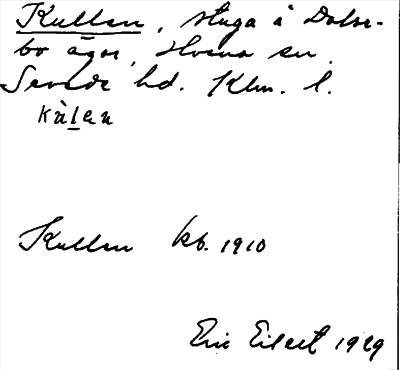 Kullen, stuga å Dalse-
bo ägor, Hvena sn
Sevede hd. Klm. l.
kùlen
Kullen kb. 1910
Eric Eilert 1929